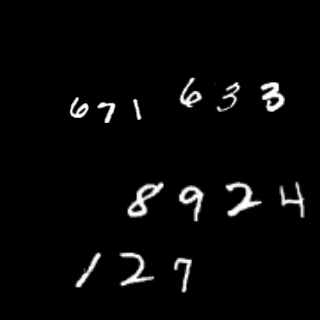 671 633
8924
127